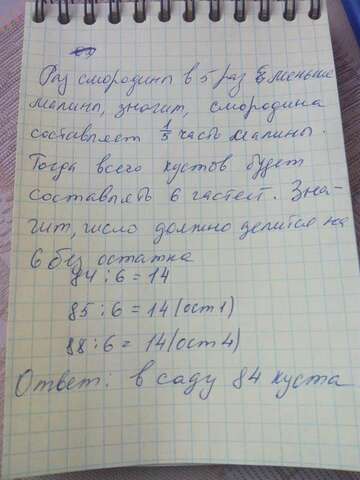 Раз смородины в 5 раз меньше
малины, значит, смородина
составляет 1/5 часть малины.
Тогда всего кустов будет
составлять 6 частей. Зна-
чит, число должно делится на
6 без остатка
84 : 6 = 14
85 : 6 = 14 (ост 1)
88 : 6 = 14 (ост 4)
Ответ: в саду 84 куста